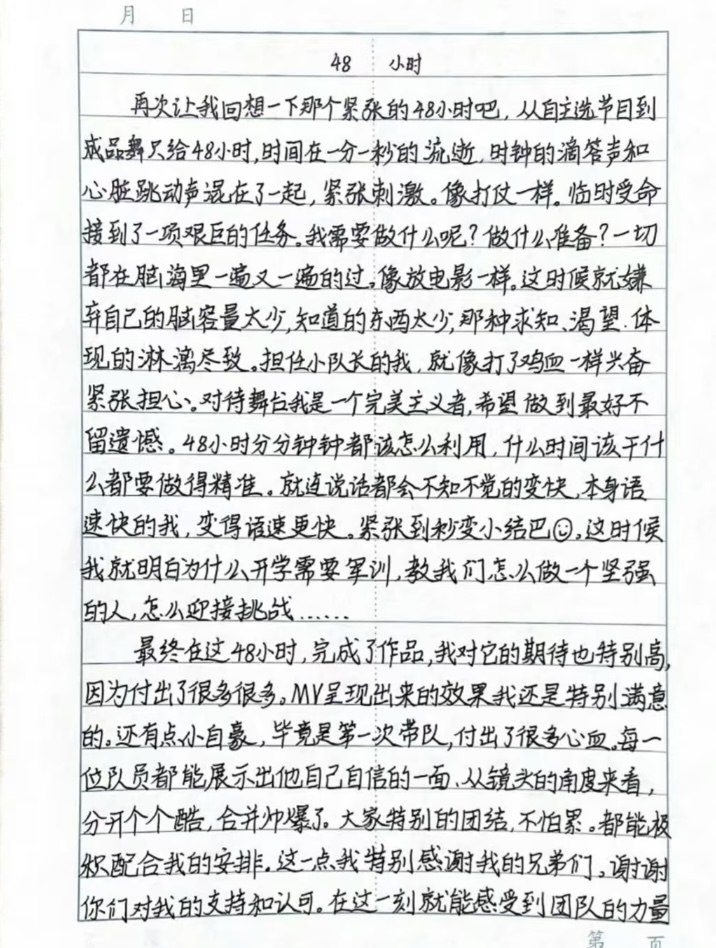 月 日
48 小时
再次让我回想一下那个紧张的48小时吧，从自主选节目到
成品舞只给48小时,时间在一分一秒的流逝.时钟的滴答声和
心脏跳动声混在了一起，紧张刺激。像打仗一样。临时受命
接到了一项艰巨的任务。我需要做什么呢？做什么准备？一切
都在脑海里一遍又一遍的过,像放电影一样。这时候就嫌
弃自己的脑容量太少,知道的东西太少,那种求知、渴望.体
现的淋漓尽致。担任小队长的我，就像打了鸡血一样兴奋
紧张担心、。对待舞台我是一个完美主义者,希望做到最好不
留遗憾。48小时分分钟钟都该怎么利用，什么时间该干什
么都要做得精准。就连说话都会不知不觉的变快,本身语
速快的我，变得语速更快。紧张到秒变小结巴☺。这时候
我就明白为什么开学需要军训，教我们怎么做一个坚强
的人，怎么迎接挑战……
最终在这48小时，完成了作品,我对它的期待也特别高,
因为付出了很多很多。MV呈现出来的效果我还是特别满意
的。还有点小自豪，毕竟是第一次带队,付出了很多心血。每一
位队员都能展示出他自己自信的一面、从镜头的角度来看，
分开个个酷，合并帅爆了。大家特别的团结,不怕累。都能极
积配合我的安排.这一点我特别感谢我的兄弟们。谢谢
你们对我的支持和认可。在这一刻就能感受到团队的力量
第 页